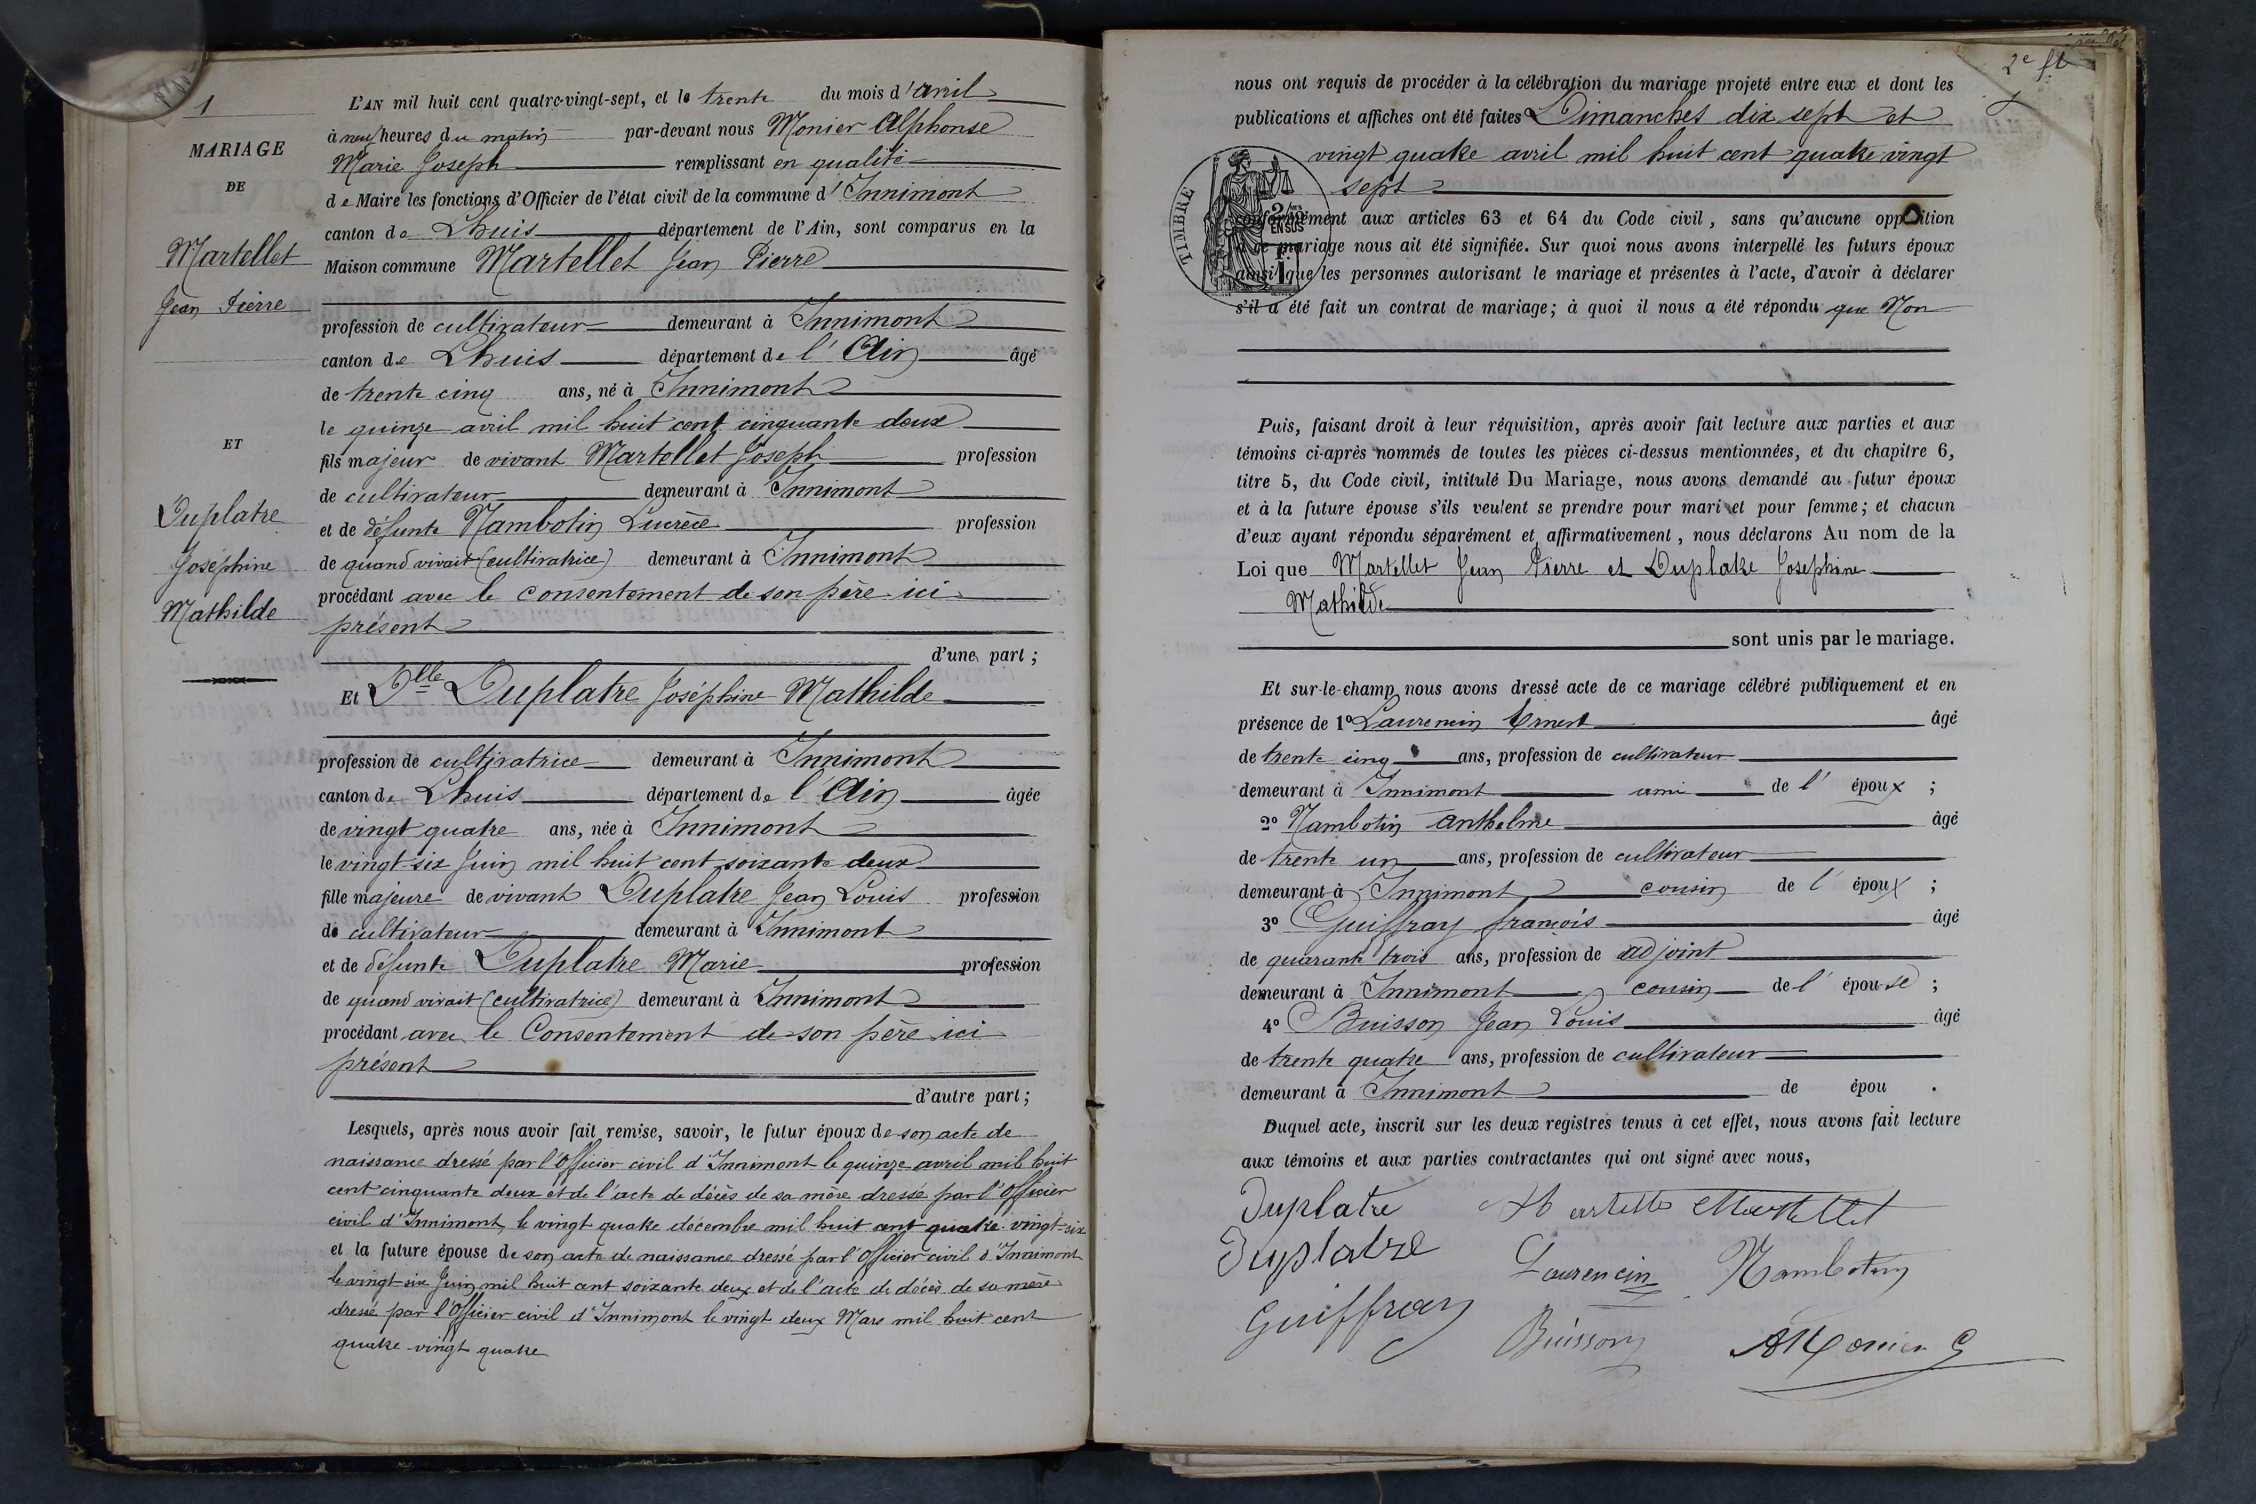 1
MARIAGE
DE
Martellet
Jean Pierre
ET
Duplatre
Joséphine
Mathilde
L'AN mil huit cent quatre-vingt-sept, et le trente du mois d'avril
à neuf heures du matin par-devant nous Monier Alphonse
Marie Joseph remplissant en qualité
de Maire les fonctions d'Officier de l'état civil de la commune d'Innimont
canton de Lhuis département de l'Ain, sont comparus en la
Maison commune Martellet Jean Pierre
profession de cultivateur demeurant à Innimont
canton de Lhuis département de l'Ain âgé
de trente cinq ans, né à Innimont
le quinze avril mil huit cent cinquante deux
fils majeur de vivant Martellet Joseph profession
de cultivateur demeurant à Innimont
et de défunte Nambotin Lucrèce profession
de quand vivait (cultivatrice) demeurant à Innimont
procédant avec le consentement de son père ici
présent
d'une part ;
Et Dlle Duplatre Joséphine Mathilde
profession de cultivatrice demeurant à Innimont
canton de Lhuis département de l'Ain âgée
de vingt quatre ans, née à Innimont
le vingt-six Juin mil huit cent soixante deux
fille majeure de vivant Duplatre Jean Louis profession
de cultivateur demeurant à Innimont
et de défunte Duplatre Marie profession
de quand vivait (cultivatrice) demeurant à Innimont
procédant avec le Consentement de son père ici
présent
d'autre part ;
Lesquels, après nous avoir fait remise, savoir, le futur époux de son acte de
naissance dressé par l'Officier civil d'Innimont le quinze avril mil huit
cent cinquante deux et de l'acte de décès de sa mère dressé par l'Officier
civil d'Innimont, le vingt quatre décembre mil huit cent quatre-vingt-six
et la future épouse de son acte de naissance dressé par l'Officier civil d'Innimont
le vingt-six Juin mil huit cent soixante deux et de l'acte de décès de sa mère
dressé par l'Officier civil d'Innimont le vingt deux Mars mil huit cent
quatre-vingt quatre
2e ft
nous ont requis de procéder à la célébration du mariage projeté entre eux et dont les
publications et affiches ont été faites Dimanches dix sept et
vingt quatre avril mil huit cent quatre vingt
sept
TIMBRE
2/10es
EN SUS
conformément aux articles 63 et 64 du Code civil, sans qu'aucune opposition
à ce mariage nous ait été signifiée. Sur quoi nous avons interpellé les futurs époux
ainsi que les personnes autorisant le mariage et présentes à l'acte, d'avoir à déclarer
s'il a été fait un contrat de mariage ; à quoi il nous a été répondu que Non
Puis, faisant droit à leur réquisition, après avoir fait lecture aux parties et aux
témoins ci-après nommés de toutes les pièces ci-dessus mentionnées, et du chapitre 6,
titre 5, du Code civil, intitulé Du Mariage, nous avons demandé au futur époux
et à la future épouse s'ils veulent se prendre pour mari et pour femme ; et chacun
d'eux ayant répondu séparément et affirmativement, nous déclarons Au nom de la
Loi que Martellet Jean Pierre et Duplatre Joséphine
Mathilde
sont unis par le mariage.
Et sur-le-champ nous avons dressé acte de ce mariage célébré publiquement et en
présence de 1º Laurencin Ernest âgé
de trente cinq ans, profession de cultivateur
demeurant à Innimont ami de l'époux ;
2º Nambotin Anthelme âgé
de trente un ans, profession de cultivateur
demeurant à Innimont cousin de l'époux ;
3º Guiffray françois âgé
de quarante trois ans, profession de adjoint
demeurant à Innimont cousin de l'épouse ;
4º Buisson Jean Louis âgé
de trente quatre ans, profession de cultivateur
demeurant à Innimont de épou .
Duquel acte, inscrit sur les deux registres tenus à cet effet, nous avons fait lecture
aux témoins et aux parties contractantes qui ont signé avec nous,
Duplatre Martellet Martellet
Duplatre Laurencin Nambotin
Guiffray Buisson AMonier